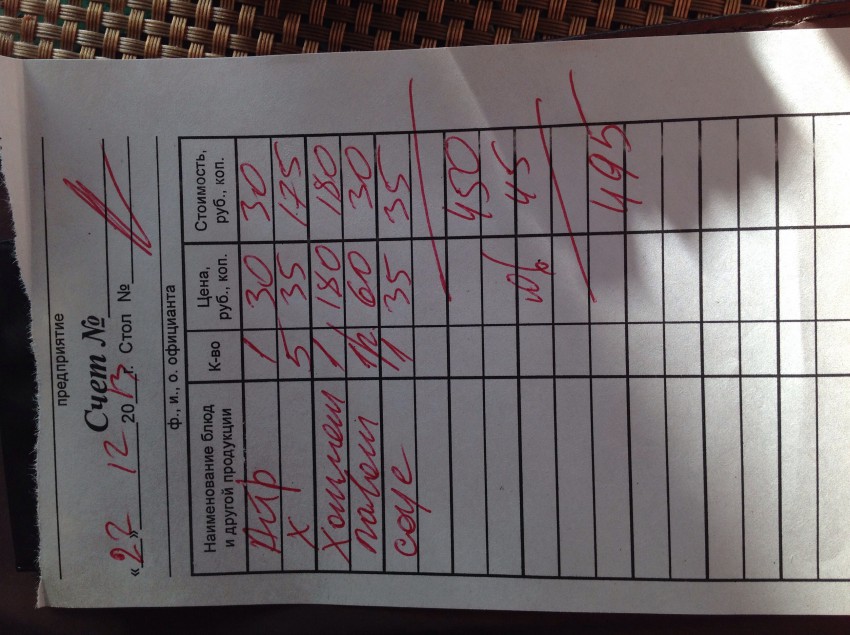 предприятие
Счет №
«22» 12 2013 г. Стол №
ф., и., о. официанта
Наименование блюд и другой продукции К-во Цена, руб., коп. Стоимость, руб., коп.
1 30 30
х 5 35 175
1 180 180
лаваш 1/2 60 30
соус 1 35 35
450
45
495